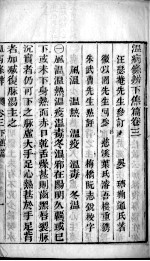 溫病條辨下焦篇卷三
汪瑟菴先生參訂　吳　瑭鞠通氏著
徵以園先生同參　慈谿葉氏濬吾樓重鐫
朱武曹先生點評　梅橋阮志棠校字
風溫　溫熱　溫疫　溫毒　冬溫
㊀風溫溫熱溫疫溫毒冬溫邪在陽明久羈或已
下或未下身熱面赤口乾舌燥甚則齒黑脣裂脈
沉實者仍可下之脈虛大手足心熱甚於手足背
者加減復脈湯主之